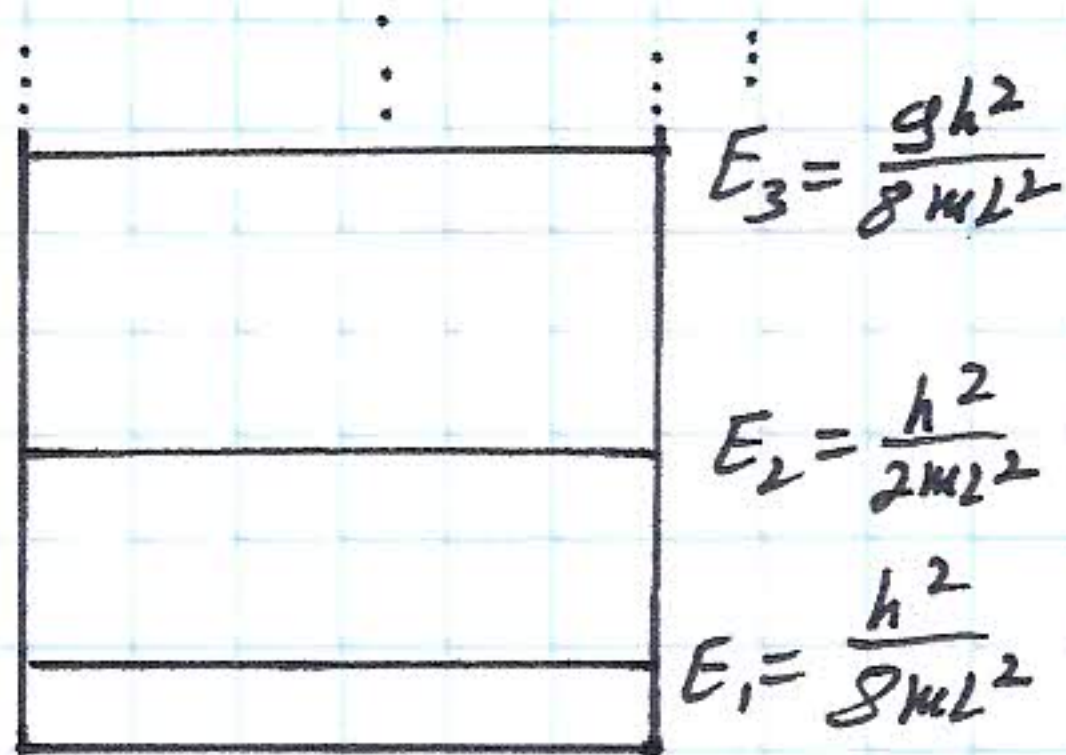 E₃ = 9h² / 8mL²
E₂ = h² / 2mL²
E₁ = h² / 8mL²